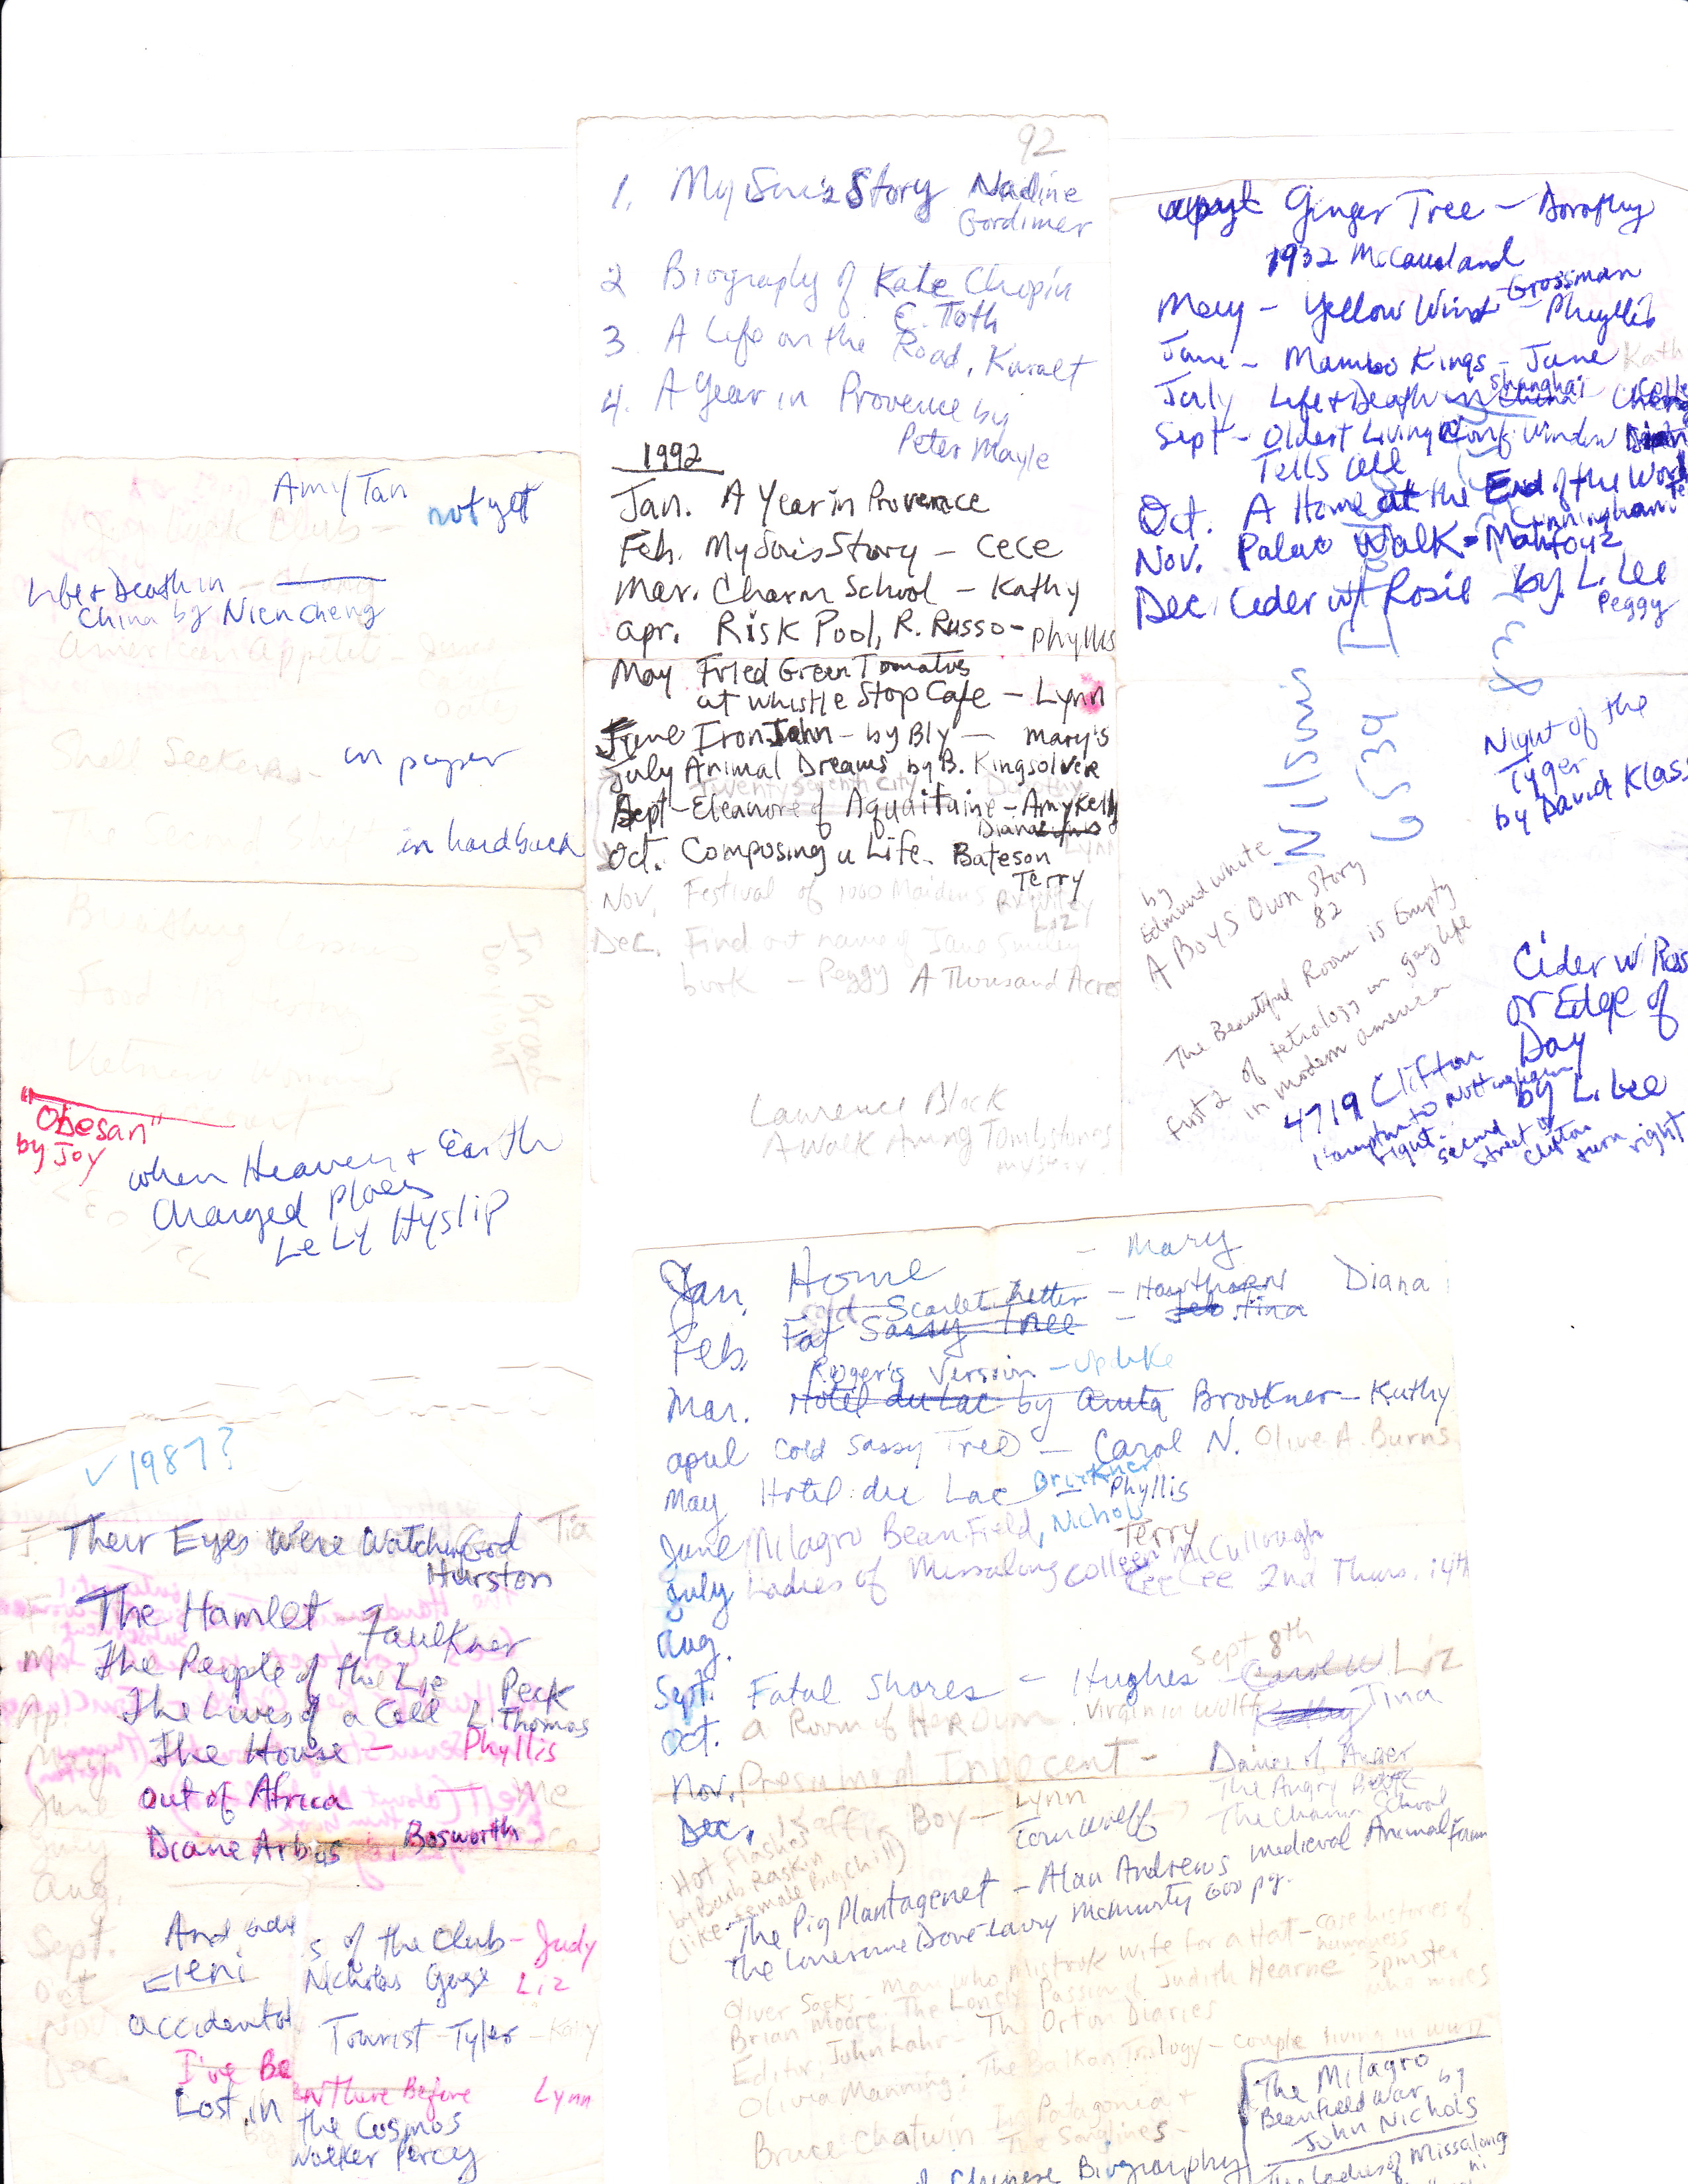 92
1. My Son's Story Nadine
Gordimer
2 Biography of Kate Chopin
E. Toth
3 A Life on the Road, Kuralt
4. A Year in Provence by
Peter Mayle
1992
Jan. A Year in Provence
Feb. My Son's Story - CeCe
Mar. Charm School - Kathy
apr. Risk Pool, R. Russo - Phyllis
May Fried Green Tomatoes
at Whistle Stop Cafe - Lynn
June Iron John - by Bly - Mary's
July Animal Dreams by B. Kingsolver
Twenty Seventh City Dorothy
Sept - Eleanore of Aquaitaine - Amy Kelly
Diana
Oct. Composing a Life. Bateson
Terry
Nov. Festival of 1000 Maidens
Liz
Dec. Find out name of Jane Smiley
book - Peggy A Thousand Acres
Lawrence Block
A Walk Among Tombstones
mystery
Ginger Tree - Dorothy
1932 McCausland
May - Yellow Wind - Grossman
Phyllis
June - Mambo Kings - June
Kath
July Life & Death in China Shanghai - Cheng
Sept - Oldest Living Conf. Window
Tells all
Oct. A Home at the End of the Worl
Cunningham
Nov. Palac Walk - Mahfouz
Dec. Ceder w/ Rosie by L. Lee
Peggy
Nilsuis
6539
Night of the
Tyger
by David Klass
by
Edmund White
A Boys Own Story
82
The Beautiful Room is Empty
First 2 of tetrology on gay life
in modern america
Cider w/ Ros
or Edge of
Day
by L. Lee
4719 Clifton
Hampton to Nottingham
right -
second street of
clifton
turn right
Amy Tan
not yet
Joy Luck Club -
Life & Death in
China by Nien Cheng
American Appetites
Shell Seekers -
in paper
The Second
in hardback
Breathing Lessons
Food
"Obesan"
by Joy
when Heaven & Earth
Changed Places
Le Ly Hyslip
✓ 1987?
Their Eyes Were Watching God
Tia
Hurston
The Hamlet Faulkner
The People of the Lie Peck
The Lives of a Cell L. Thomas
The House - Phyllis
Out of Africa
Diane Arbus, Bosworth
And
s of the Club - Judy
Eleni Nicholas Gage Liz
accidental Tourist - Tyler - Kathy
I've Been There Before Lynn
Lost in the Cosmos
Walker Percy
J.
F.
M
Ap.
May
June Me
July
Aug.
Sept.
Oct
Nov
Dec.
Jan. Home - Mary
Scarlet Letter - Hawthorne Diana
Feb. Sassy Tree - Tina
Roger's Version - Updike
Mar. Hotel du Lac by Anita Brookner - Kathy
april Cold Sassy Tree - Carol N. Olive A. Burns
May Hotel du Lac Brookner
Phyllis
June Milagro Beanfield, Nichols
Terry
July Ladies of Missalong Colleen McCullough
CeeCee 2nd Thurs. 14th
Aug.
Sept 8th
Sept. Fatal Shores - Hughes - Carol W. Liz
Oct. a Room of Her Own, Virginia Wolff Kathy Tina
Nov. Presumed Innocent -
Dance of Anger
The Angry
The Charm School
Dec. Boy - Lynn
Hot Flashes
by Barb Raskin
(like female Big Chill)
The Pig Plantagenet - Alan Andrews medieval Animal Farm
The Lonesome Dove - Larry McMurty 600 pg.
Oliver Sacks - Man who mistook wife for a Hat - case histories of
Brian Moore: The Lonely Passion of Judith Hearne Spinster
who moves
Editor, John Lahr - Th Orton Diaries
Olivia Manning: The Balkan Trilogy - couple living in WWII
Bruce Chatwin - In Patagonia +
The Songlines -
The Milagro
Beanfield War by
John Nichols
The Ladies of Missalong
Chinese Biography